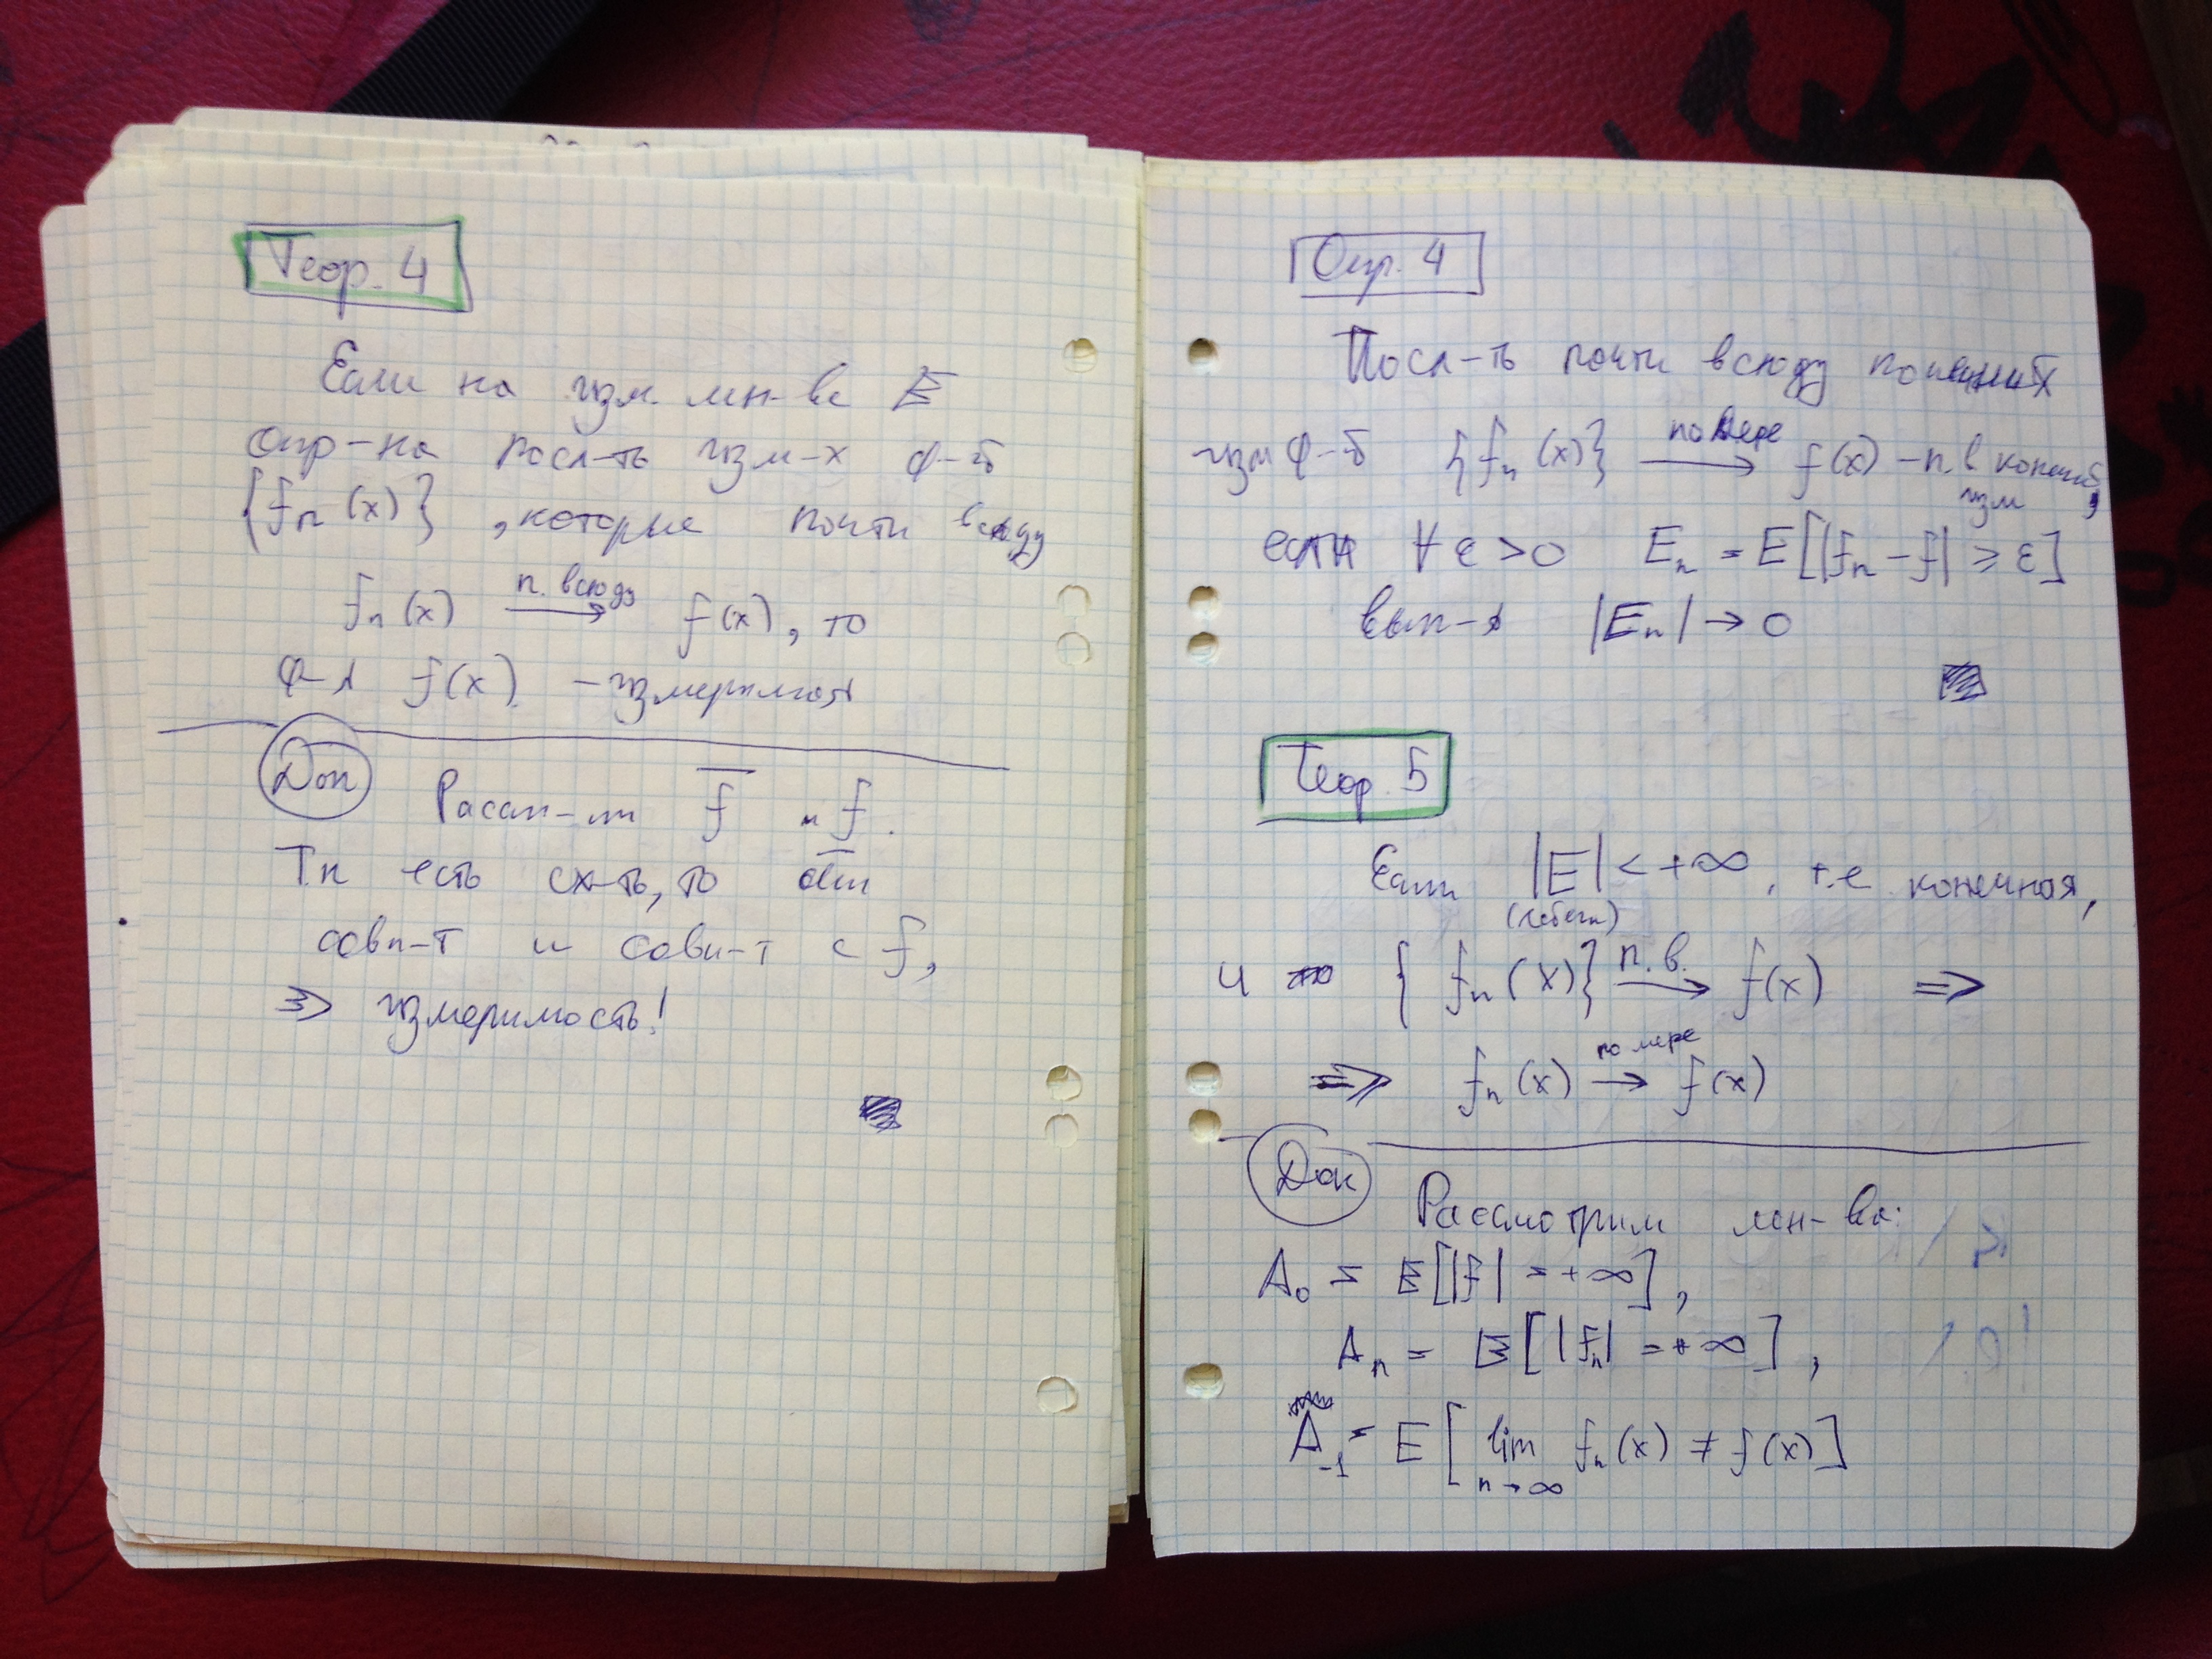 Теор. 4
Если на изм. мн-ве E
опр-на посл-ть изм-х ф-й
{fₙ(x)}, которые почти всюду
fₙ(x) п. всюду → f(x), то
ф-я f(x) – измеримая
Док Рассм-им f̅ и f̲.
Тк есть сх-ть, то они
совп-т и совп-т с f,
⇒ измеримость!
Опр. 4
Посл-ть почти всюду конечных
изм ф-й {fₙ(x)} по мере → f(x) – п. в конечн,
изм
если ∀ ε > 0 Eₙ = E[|fₙ - f| ⩾ ε]
вып-я |Eₙ| → 0
Теор. 5
Если |E| < +∞, т.е конечная,
(лебегн)
и {fₙ(x)} п.в. → f(x) ⇒
⇒ fₙ(x) по мере → f(x)
Док Рассмотрим мн-ва:
A₀ = E[|f| = +∞],
Aₙ = E[|fₙ| = +∞],
A₋₁ = E[lim n→∞ fₙ(x) ≠ f(x)]